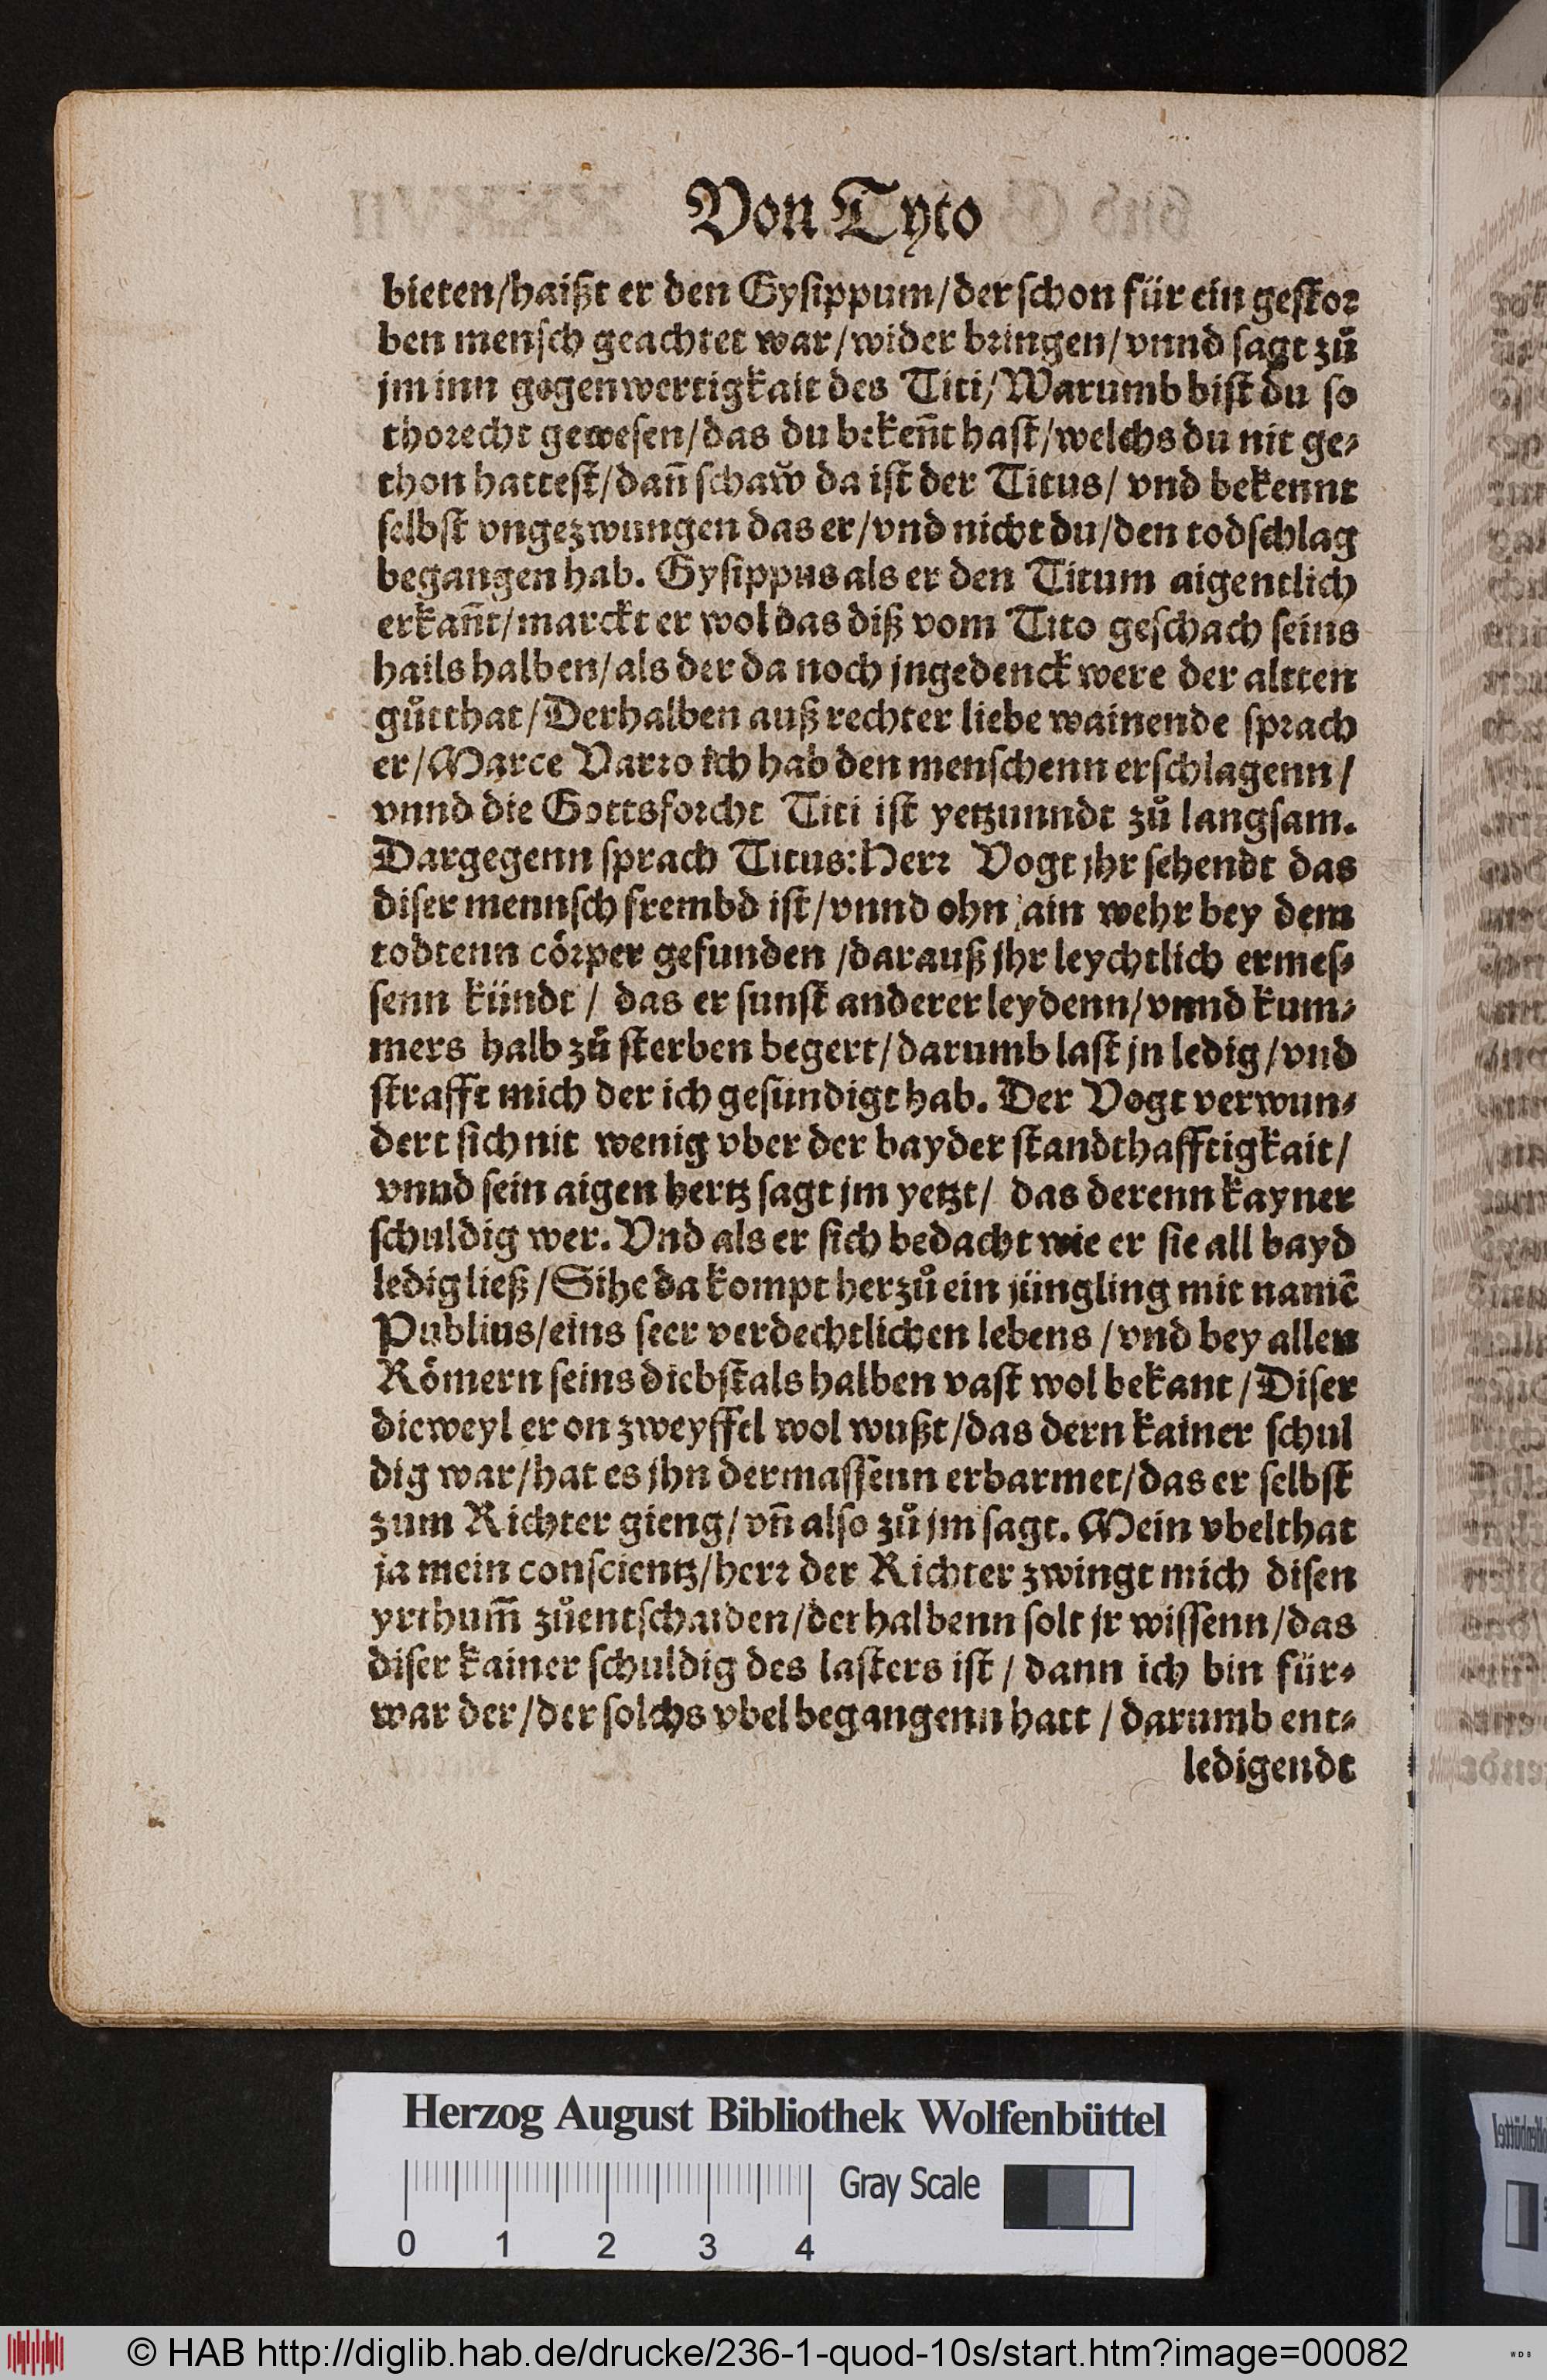 Von Tyto
bieten/haißt er den Gysippum/der ſchon für ein geſtoꝛ
ben menſch geachtet war/wider bꝛingen/vnnd ſagt zů
jm inn gegenwertigkait des Titi/Warumb biſt du ſo
thoꝛecht geweſen/das du bekeñt haſt/welchs du nit ge⸗
thon hatteſt/dañ ſchaw̃ da iſt der Titus/ vnd bekennt
ſelbſt vngezwungen das er/vnd nicht du/den todſchlag
begangen hab. Gyſippus als er den Titum aigentlich
erkañt/marckt er wol das diß vom Tito geſchach ſeins
hails halben/als der da noch jngedenck were der altten
gůtthat/Derhalben auß rechter liebe wainende ſpꝛach
er/Marce Varꝛo ich hab den menſchenn erſchlagenn/
vnnd die Gottsfoꝛcht Titi iſt yetzunndt zů langſam.
Dargegenn ſprach Titus:Herꝛ Vogt jhr ſehendt das
diſer mennſch frembd iſt/vnnd ohn ain wehr bey dem
todtenn cöꝛper gefunden /darauß jhr leychtlich ermeſ⸗
ſenn kündt / das er ſunſt anderer leydenn/vnnd kum⸗
mers halb zů ſterben begert/darumb laſt jn ledig/vnd
ſtrafft mich der ich geſündigt hab. Der Vogt verwun⸗
dert ſich nit wenig vber der bayder ſtandthafftigkait/
vnnd ſein aigen hertz ſagt jm yetzt/ das derenn kayner
ſchuldig wer. Vnd als er ſich bedacht wie er ſie all bayd
ledig ließ/Sihe da kompt herzů ein jüngling mit namẽ
Publius/eins ſeer verdechtlichen lebens /vnd bey allen
Römern ſeins diebſtals halben vaſt wol bekant/Diſer
dieweyl er on zweyffel wol wußt/das dern kainer ſchul
dig war/hat es jhn dermaſſenn erbarmet/das er ſelbſt
zum Richter gieng/vñ alſo zů jm ſagt. Mein vbelthat
ja mein conſcientz/herꝛ der Richter zwingt mich diſen
yrthum̃ zůentſchaiden/derhalbenn ſolt jr wiſſenn/das
diſer kainer ſchuldig des laſters iſt / dann ich bin für⸗
war der/der ſolchs vbel begangenn hatt / darumb ent⸗
ledigendt
Herzog August Bibliothek Wolfenbüttel
Gray Scale
0 1 2 3 4
© HAB http://diglib.hab.de/drucke/236-1-quod-10s/start.htm?image=00082